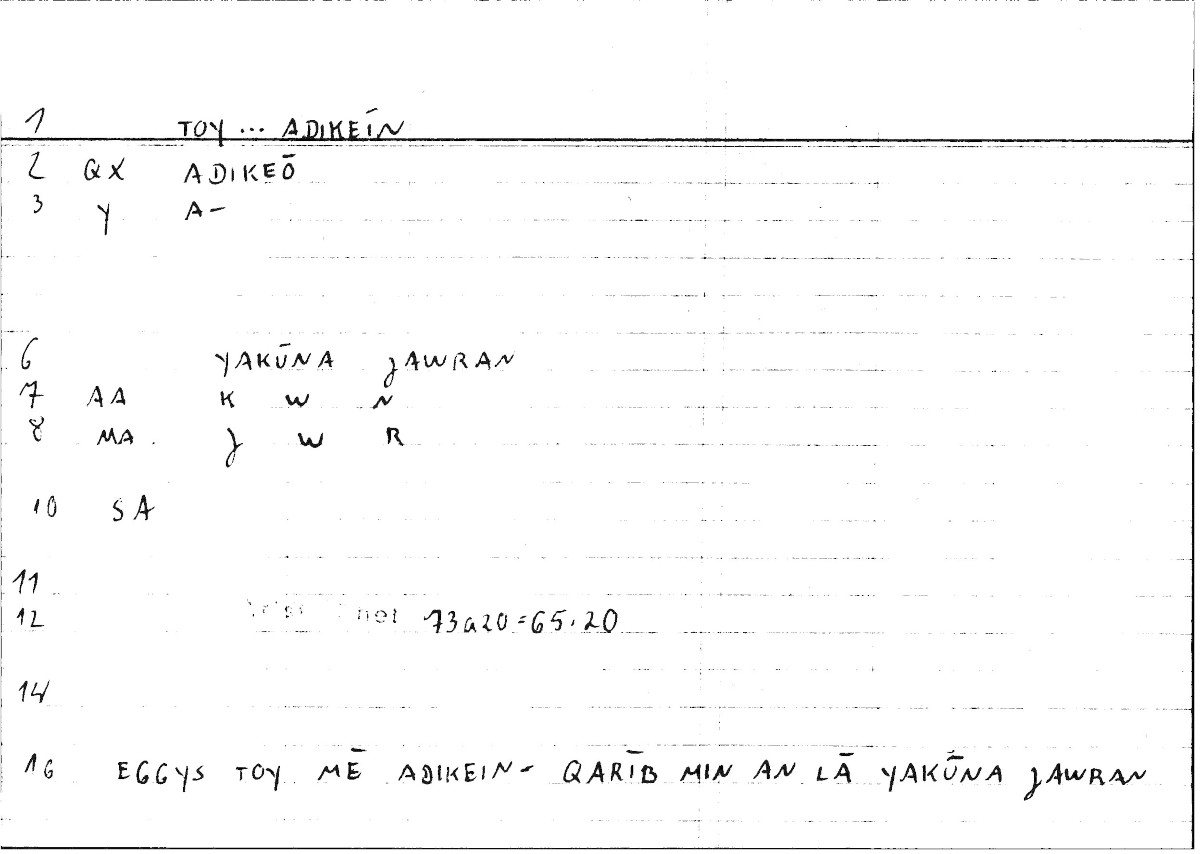 1 TOY ... ADIKEĪN
2 QX ADIKEŌ
3 Y A-
6 YAKŪNA JAWRAN
7 AA K W N
8 MA J W R
10 SA
11
12 73a20=65.20
14
16 EGGYS TOY MĒ ADIKEIN- QARĪB MIN AN LĀ YAKŪNA JAWRAN